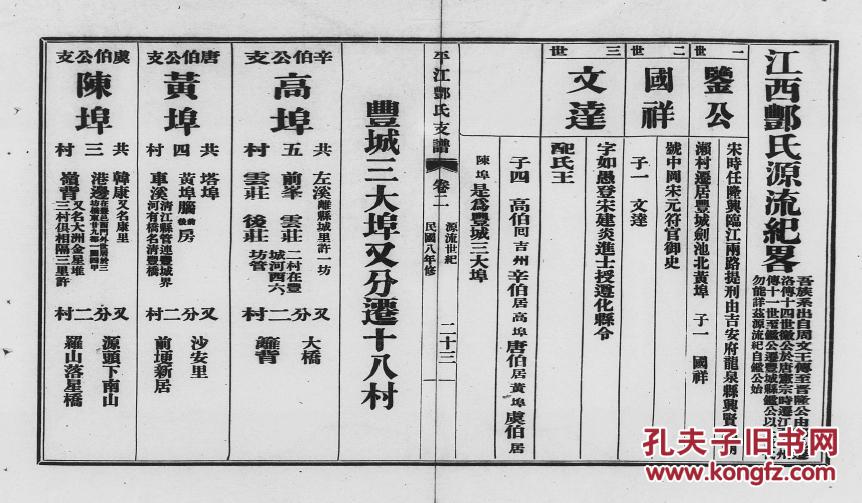 江西酆氏源流紀畧
吾族系出自周文王傳至晉隆公由
洛傳十四世徽公於唐憲宗時遷江
傳十一世至鑑公遷豐城縣鑑公以
勿能詳茲源流紀自鑑公始
一世
鑒公
宋時任隆興臨江兩路提刑由吉安府龍泉縣興賢
瀨村遷居豐城劍池北黃埠 子一 國祥
二世
國祥
號中岡宋元符官御史
子一 文達
三世
文達
字如愚登宋建炎進士授遵化縣令
配氏王
子四 高伯回吉州 辛伯居高埠 唐伯居黃埠 虞伯居
陳埠 是為豐城三大埠
平江酆氏支譜 卷二 源流世紀 二十三
民國八年修
豐城三大埠又分遷十八村
辛伯公支
高埠
共五村
左溪離縣城里許一坊
前峯 雲莊 二村在豐城河西六
雲莊 後莊 坊管
又分二村
大橋
龐背
唐伯公支
黃埠
共四村
塔埠
黃埠腦前後房
車溪清江縣管連豐城界河有橋名清豐橋
又分二村
沙安里
前埂新居
虞伯公支
陳埠
共三村
韓康又名康里
港邊
嶺背又名大洲金星堆三村俱相隔三里許
又分二村
源頭下南山
羅山落星橋
孔夫子旧书网
www.kongfz.com